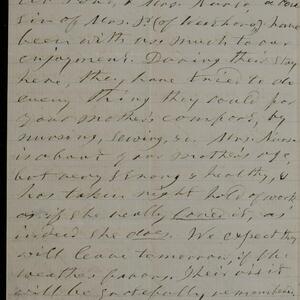 son, & Mrs. Nurse, a cou
sin of Mrs. S. (of Westboro') have
been with us much to our
enjoyment. During their stay
here, they have tried to do
every thing they could for
your mother's comfort, by
nursing, sewing, &c. Mrs. Nurse
is about your mother's age,
but very strong & healthy, &
has taken right hold of work
as if she really loved it, as
indeed she does. We expect they
will leave tomorrow, if the
weather favors. Their visit
will be gratefully remember